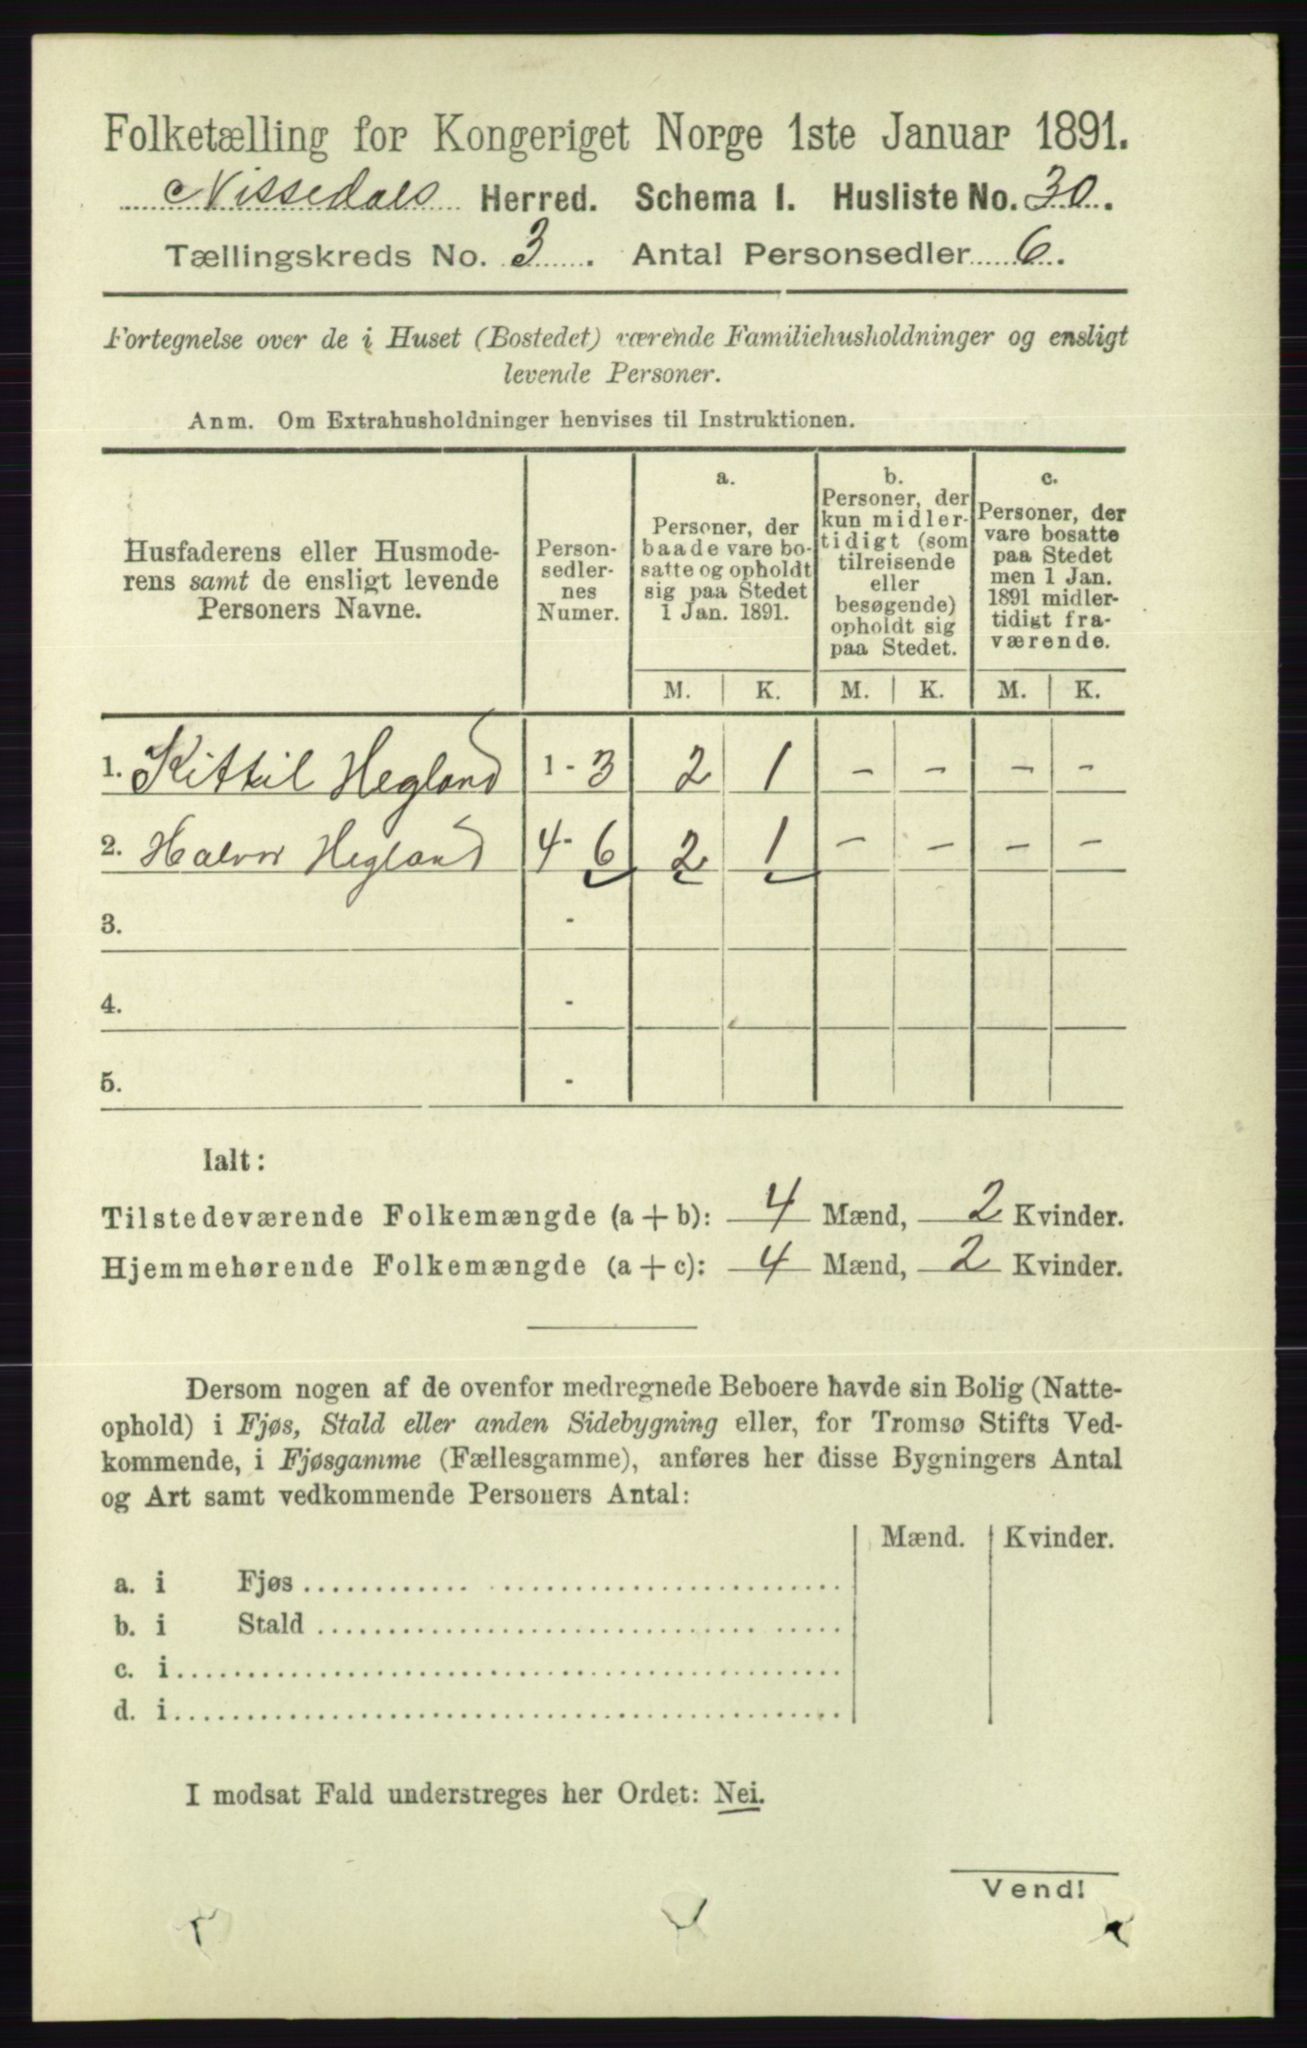 Folketælling for Kongeriget Norge 1ste Januar 1891.
Nissedals Herred. Schema I. Husliste No. 30.
Tællingskreds No. 3. Antal Personsedler 6.
Fortegnelse over de i Huset (Bostedet) værende Familiehusholdninger og ensligt
levende Personer.
Anm. Om Extrahusholdninger henvises til Instruktionen.
Husfaderens eller Husmode-
rens samt de ensligt levende
Personers Navne.
Person-
sedler-
nes
Numer.
a.
Personer, der
baade vare bo-
satte og opholdt
sig paa Stedet
1 Jan. 1891.
b.
Personer, der
kun midler-
tidigt (som
tilreisende
eller
besøgende)
opholdt sig
paa Stedet.
c.
Personer, der
vare bosatte
paa Stedet
men 1 Jan.
1891 midler-
tidigt fra-
værende.
M. K. M. K. M. K.
1. Kittil Hegland 1 - 3 2 1 - - - -
2. Halvor Hegland 4 - 6 2 1 - - - -
3. -
4. -
5. -
Ialt:
Tilstedeværende Folkemængde (a + b): 4 Mænd, 2 Kvinder.
Hjemmehørende Folkemængde (a + c): 4 Mænd, 2 Kvinder.
Dersom nogen af de ovenfor medregnede Beboere havde sin Bolig (Natte-
ophold) i Fjøs, Stald eller anden Sidebygning eller, for Tromsø Stifts Ved-
kommende, i Fjøsgamme (Fællesgamme), anføres her disse Bygningers Antal
og Art samt vedkommende Personers Antal:
Mænd. Kvinder.
a. i Fjøs
b. i Stald
c. i
d. i
I modsat Fald understreges her Ordet: Nei.
Vend!